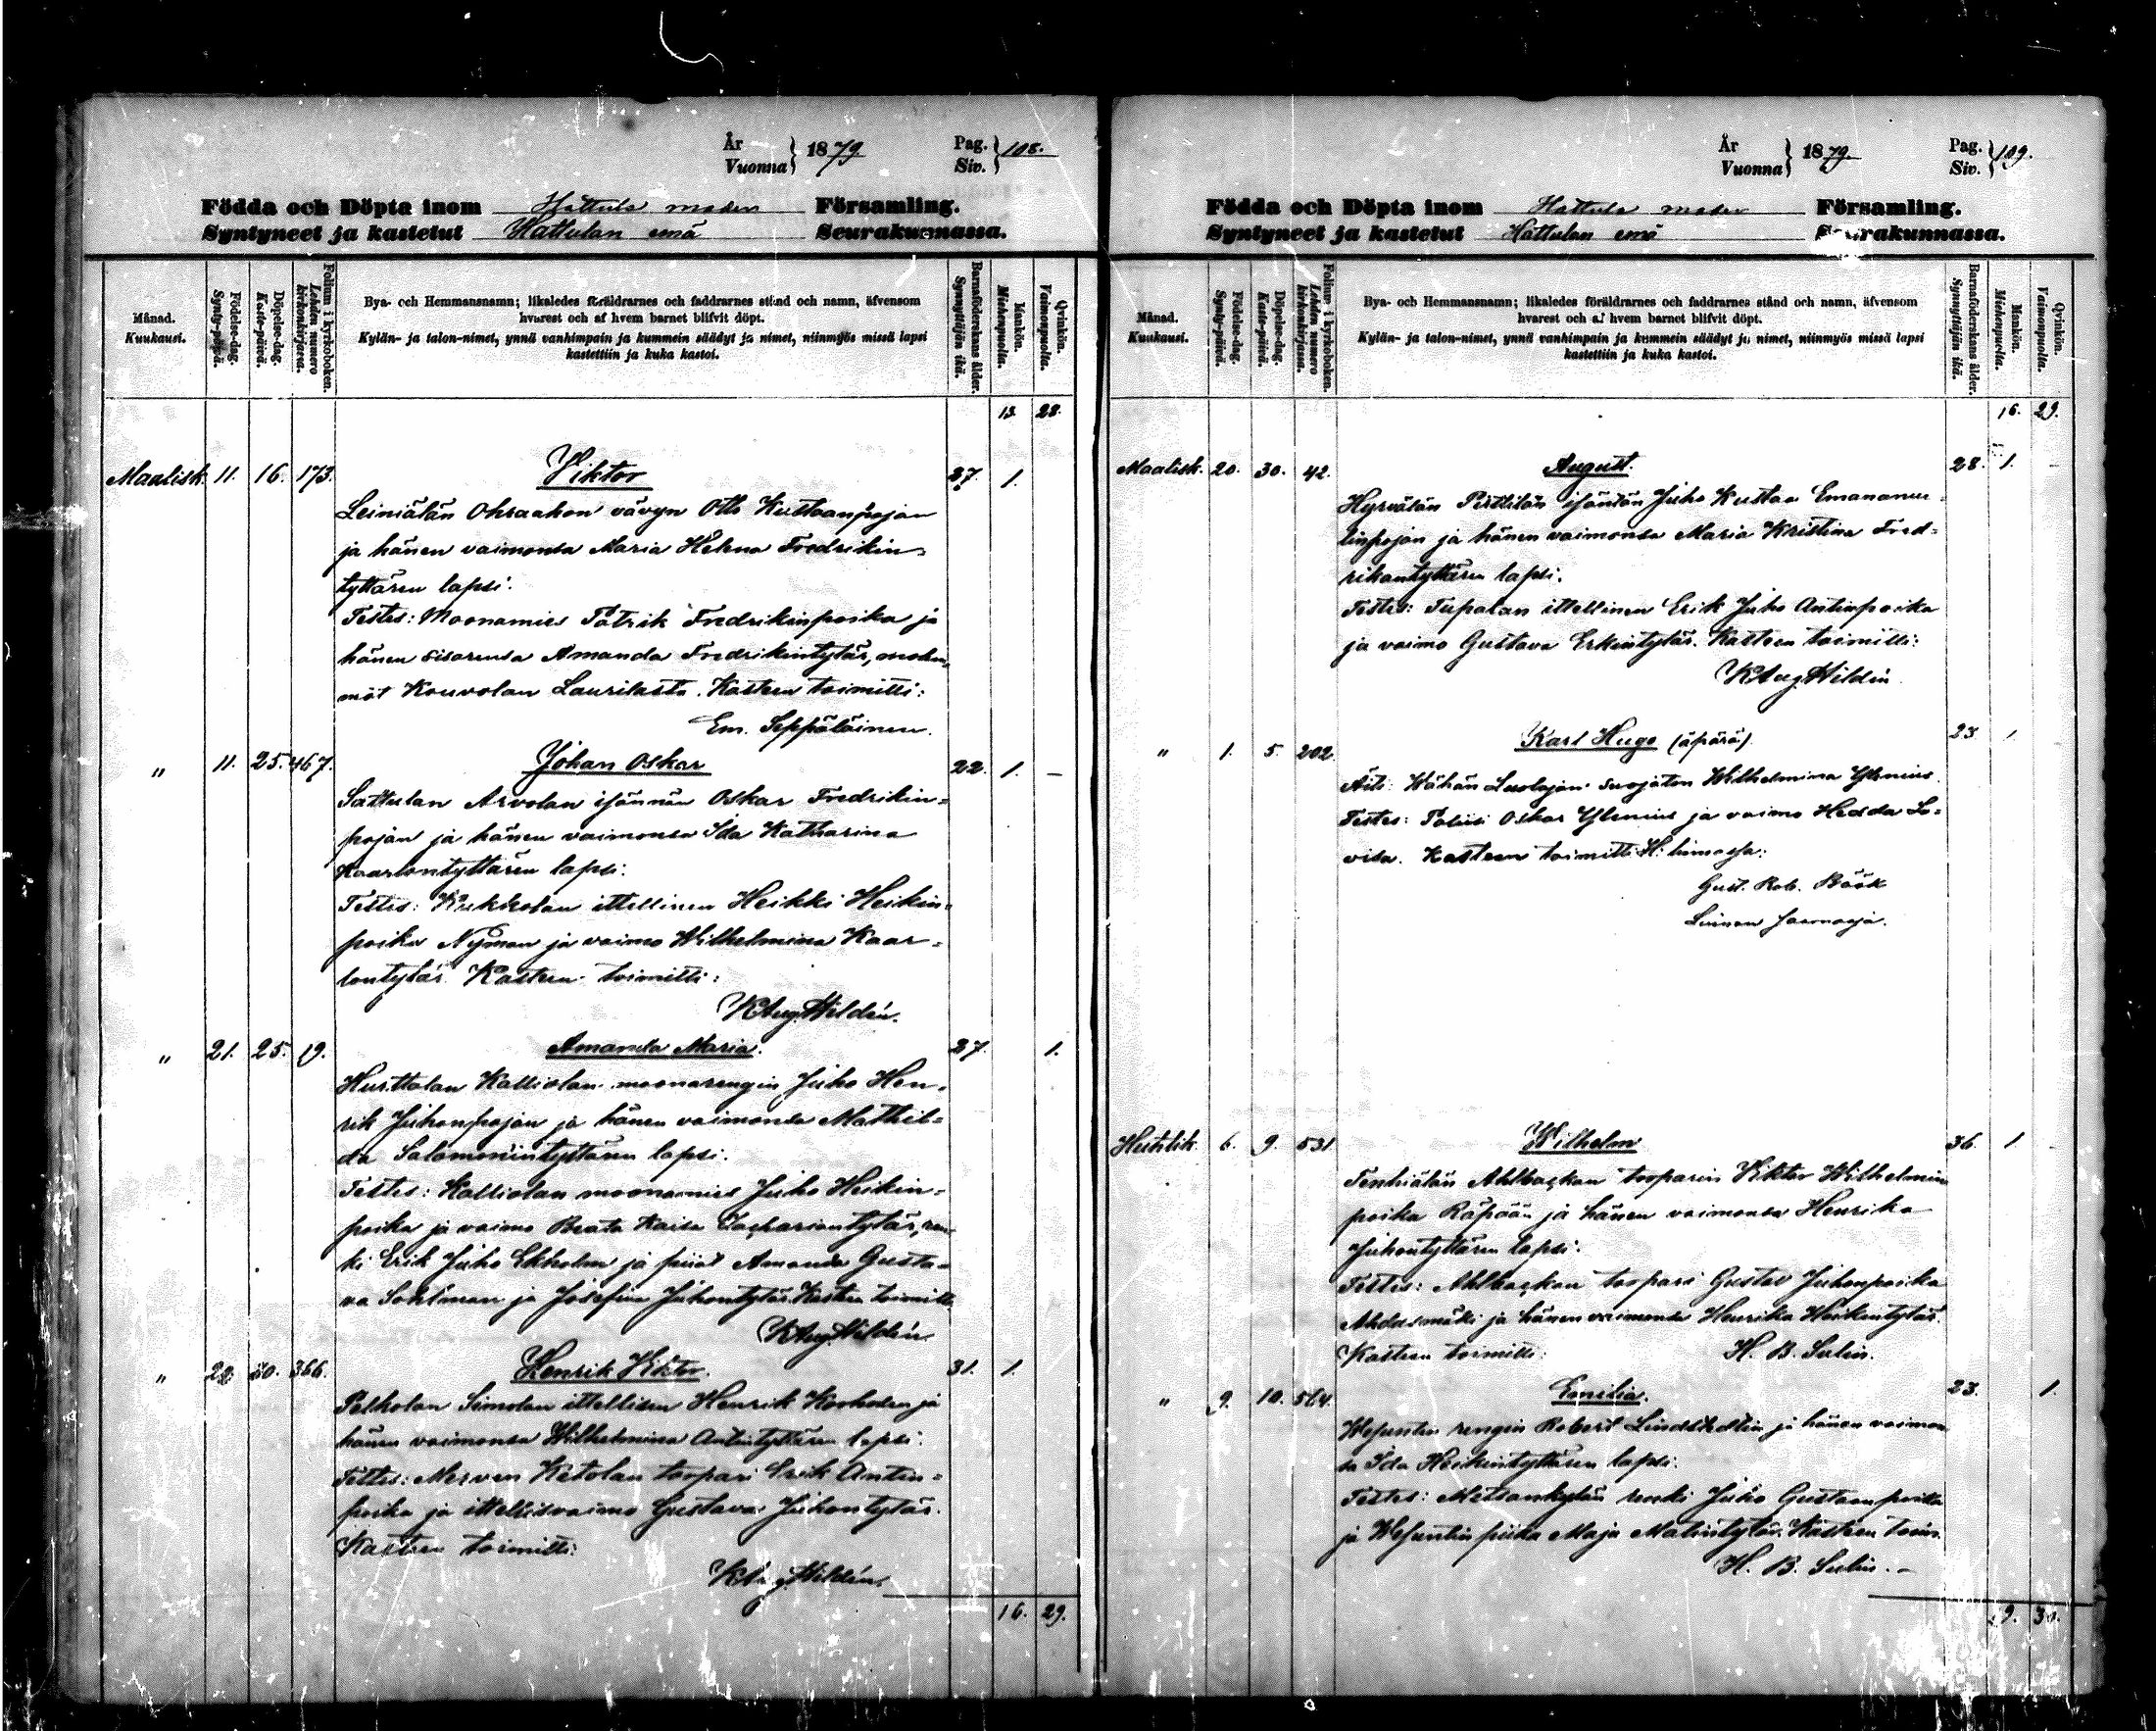 År
Vuonna } 1879. Pag.
Siv. } 108.
Födda och Döpta inom Hattula moder Församling.
Syntyneet ja kastetut Hattulan emä Seurakunnassa.
Månad.
Kuukausi.
Födelse-dag.
Synty-päivä.
Döpelse-dag.
Kaste-päivä.
Folium i kyrkoboken.
Lehden numero
kirkonkirjassa.
Bya- och Hemmansnamn; likaledes föräldrarnes och faddrarnes stånd och namn, äfvensom
hvarest och af hvem barnet blifvit döpt.
Kylän- ja talon-nimet, ynnä vanhimpain ja kummein säädyt ja nimet, niinmyös missä lapsi
kastettiin ja kuka kastoi.
Barnaföderskans ålder.
Synnyttäjän ikä.
Mankön.
Miehenpuolta.
Qvinkön.
Vaimonpuolta.
13. 28.
Maalisk. 11. 16. 173. Viktor 37. 1.
Leiniälän Ohraahon vävyn Otto Kustaanpojan
ja hänen vaimonsa Maria Helena Fredrikin-
tyttären lapsi.
Testes: Moonamies Patrik Fredrikinpoika ja
hänen sisarensa Amanda Fredrikintytär, molem-
mat Kouvolan Laurilasta. Kasteen toimitti:
Em. Seppäläinen.
" 11. 25. 467. Johan Oskar 22. 1. -
Sattulan Arvolan isännän Oskar Fredrikin-
pojan ja hänen vaimonsa Ida Katharina
Kaarlontyttären lapsi.
Testes: Kukkolan ittellinen Heikki Heikin-
poika Nyman ja vaimo Wilhelmina Kaar-
lontytär. Kasteen toimitti:
K Aug. Hildén.
" 21. 25. 19. Amanda Maria. 37. 1.
Hurttalan Kalliolan moonarengin Juho Hen-
rik Juhonpojan ja hänen vaimonsa Mathil-
da Salomonintyttären lapsi.
Testes: Kalliolan moonamies Juho Heikin-
poika ja vaimo Beata Kaisa Zachariantytär, ren-
ki Erik Juho Ekholm ja piiat Amanda Gusta-
va Sohlman ja Josefina Juhontytär. Kasteen toimitti
K Aug. Hildén
" 22. 30. 366. Henrik Viktor. 31. 1.
Pelkolan Simolan ittellisen Henrik ja
hänen vaimonsa Wilhelmina Antintyttären lapsi.
Testes: Merven Ketolan torpari Erik Antin-
poika ja ittellisvaimo Gustava Juhontytär.
Kasteen toimitti:
K Aug. Hildén.
16. 29.
År
Vuonna } 1879. Pag.
Siv. } 109.
Födda och Döpta inom Hattula moder Församling.
Syntyneet ja kastetut Hattulan emä Seurakunnassa.
Månad.
Kuukausi.
Födelse-dag.
Synty-päivä.
Döpelse-dag.
Kaste-päivä.
Folium i kyrkoboken.
Lehden numero
kirkonkirjassa.
Bya- och Hemmansnamn; likaledes föräldrarnes och faddrarnes stånd och namn, äfvensom
hvarest och af hvem barnet blifvit döpt.
Kylän- ja talon-nimet, ynnä vanhimpain ja kummein säädyt ja nimet, niinmyös missä lapsi
kastettiin ja kuka kastoi.
Barnaföderskans ålder.
Synnyttäjän ikä.
Mankön.
Miehenpuolta.
Qvinkön.
Vaimonpuolta.
16. 29.
Maalisk. 20. 30. 42. August. 28. 1. -
Hyrvälän Perttilän isännän Juho Kustaa Emanuel-
linpojan ja hänen vaimonsa Maria Kristina Fred-
rikantyttären lapsi.
Testes: Tupalan ittellinen Erik Juho Antinpoika
ja vaimo Gustava Erkintytär. Kasteen toimitti:
K Aug. Hildén
" 1. 5. 202. Karl Hugo (äpärä) 23. 1
Äiti: Wähän Luolajan suojaton Wilhelmina Ylenius.
Testes: Poliisi Oskar Ylenius ja vaimo Hedda Lo-
visa. Kasteen toimitti H: linnassa:
Gust. Rob. Böök
Linnan saarnaaja.
Huhtik. 6. 9. 531. Wilhelm 36. 1 -
Tenhiälän Ahlbackan torparin Viktor Wilhelmin
poika Räpään ja hänen vaimonsa Henrika
Juhontyttären lapsi.
Testes: Ahlbackan torpari Gustav Juhonpoika
Ahdasmäki ja hänen vaimonsa Henrika Heikintytär.
Kasteen toimitti: H. B. Sulin.
" 9. 10. 564. Emilia. 23. 1.
rengin Robert Lindstedtin ja hänen vaimon
sa Ida Heikintyttären lapsi.
Testes: Metsänkylän renki Juho Gustaanpoika
ja piika Maja Matintytär. Kasteen toim.
H. B. Sulin. -
19. 30.